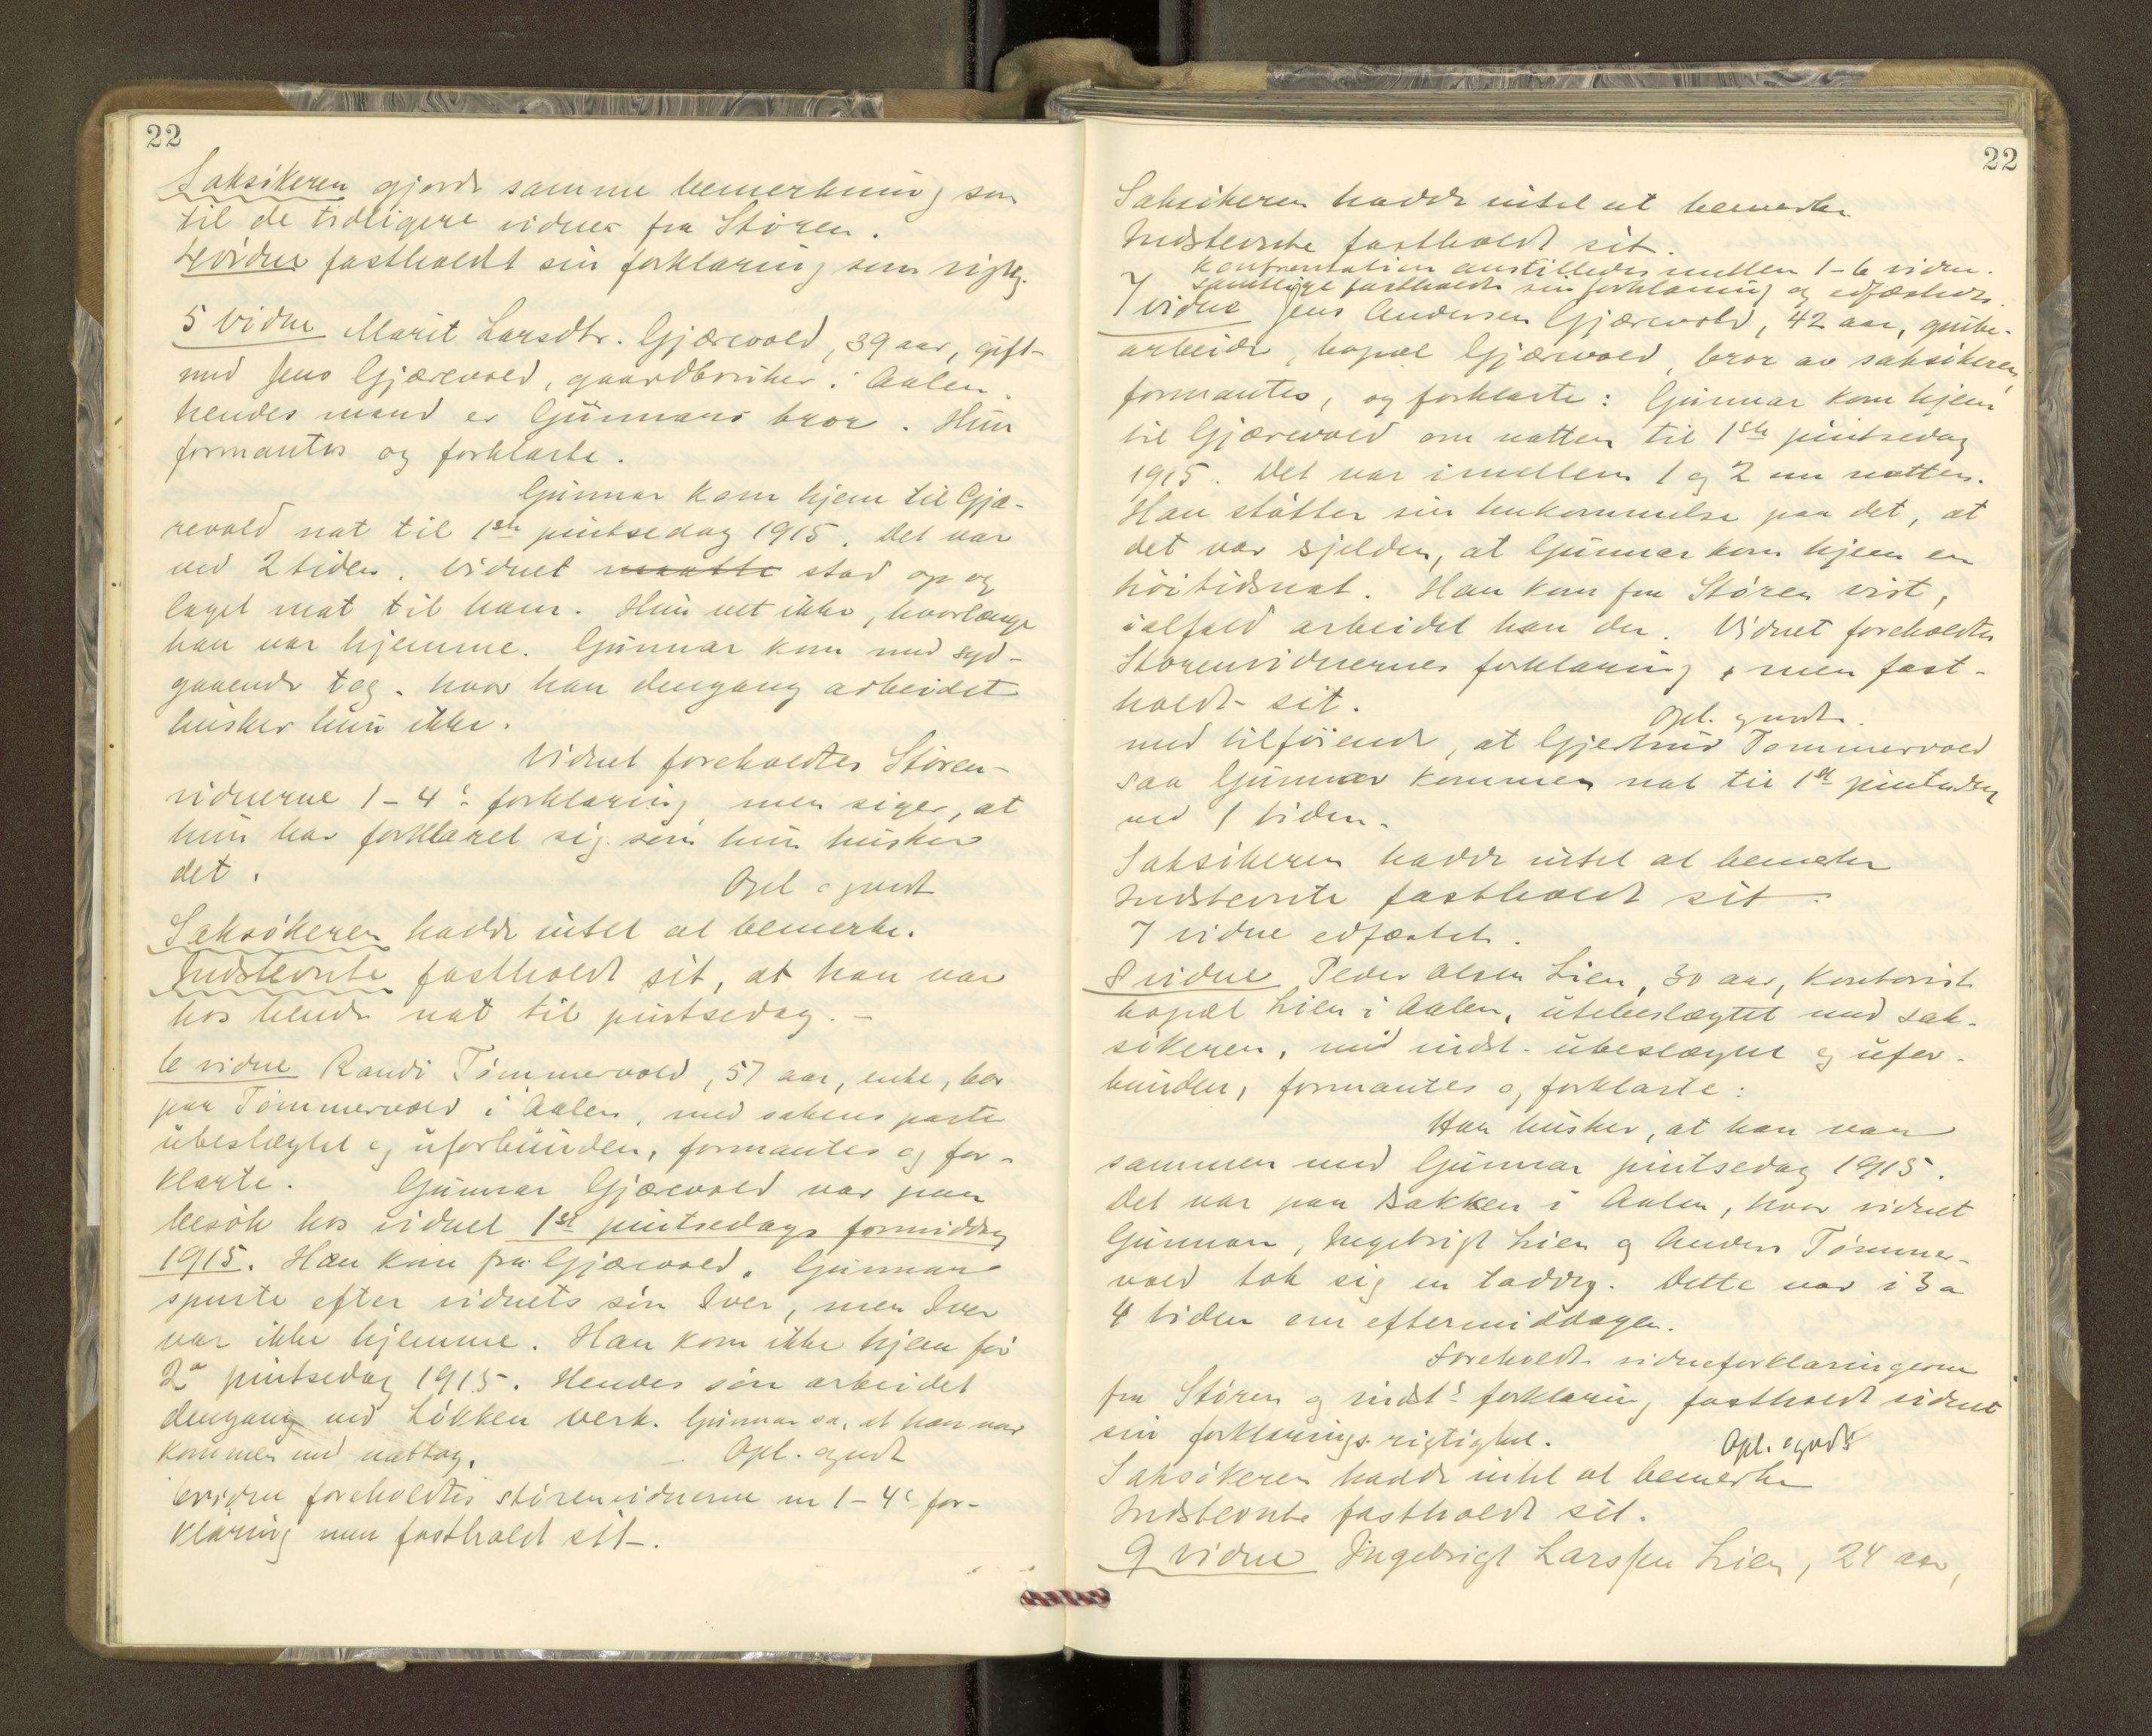 22
Saksøkeren gjorde samme bemerkning som
til de tidligere vidner fra Støren.
4 vidne fastholdt sin forklaring som rigtig.
5 vidne Marit Larsdtr. Gjærevold, 39 aar, gift
med Jens Gjærevold, gaardbruker i Aalen
hendes mand er Gunnars bror. Hun
formantes og forklarte.
Gunnar kom hjem til Gjæ-
revold nat til 1ste pintsedag 1915. Det var
ved 2 tiden. Vidnet maatte stod op og
laget mat til ham. Hun vet ikke, hvorlænge
han var hjemme. Gunnar kom med syd-
gaaende tog. hvor han dengang arbeidet
husker hun ikke.
Vidnet foreholdtes Støren-
vidnerne 1-4s forklaring men siger, at
hun har forklaret sig som hun husker
det.
Opl. og vedt
Saksøkeren hadde intet at bemerke.
Indstevnte fastholdt sit, at han var
hos hende nat til pintsedag. -
6 vidne Randi Tømmervold, 57 aar, enke, bor
paa Tømmervold i Aalen, med sakens parter
ubeslegtet og uforbunden, formantes og for-
klarte. Gunnar Gjærevold var paa
besøk hos vidnet 1ste pintsedags formiddag
1915. Han kom fra Gjærevold. Gunnar
spurte efter vidnets søn Iver, men Iver
var ikke hjemme. Han kom ikke hjem før
2n pintsedag 1915. Hendes søn arbeidet
dengang ved Løkken verk. Gunnar sa, at han var
kommen med nattog. - Opl. og vedt
6 vidne foreholdtes størenvidnerne nr 1-4s for-
klaring men fastholdt sit.
22
Saksøkeren hadde intet at bemerke
Indstevnte fastholdt sit.
Konfrontation anstilledes mellem 1-6 vidne.
Samtlige fastholdt sin forklaring og edfæstedes.
7 vidne Jens Andersen Gjærevold, 42 aar, grube-
arbeider, bopæl Gjærevold, bror av saksøkeren,
formantes, og forklarte: Gunnar kom hjem
til Gjærevold om natten til 1ste pintsedag
1915. Det var imellem 1 og 2 om natten.
Han støtter sin hukommelse paa det, at
det var sjelden, at Gunnar kom hjem en
høitidsnat. Han kom fra Støren vist,
ialfald arbeidet han der. Vidnet foreholdtes
Størenvidnernes forklaring, men fast-
holdt sit.
Opl. og vedt.
med tilføiende, at Gjertrud Tømmervold
saa Gunnar kommen nat til 1ste pintsedag
ved 1 tiden.
Saksøkeren hadde intet at bemerke
Indstevnte fastholdt sit.
7 vidne edfæstet.
8 vidne Peder Olsen Lien, 30 aar, kontorist
bopæl Lien i Aalen, utebeslægtet med sak-
søkeren, med indst. ubeslægtet og ufor-
bunden, formantes og forklarte:
Han husker, at han var
sammen med Gunnar pintsedag 1915.
Det var paa Bakken i Aalen, hvor vidnet
Gunnar, Ingebrigt Lien og Anders Tømmer-
vold tok sig en toddy. Dette var i 3 a
4 tiden om eftermiddagen.
Foreholdt vidneforklaringerne
fra Støren og indsts forklaring fastholdt vidnet
sin forklarings rigtighet.
Opl. og vedt
Saksøkeren hadde intet at bemerke
Indstevnte fastholdt sit.
9 vidne Ingebrigt Larssen Lien, 24 aar,